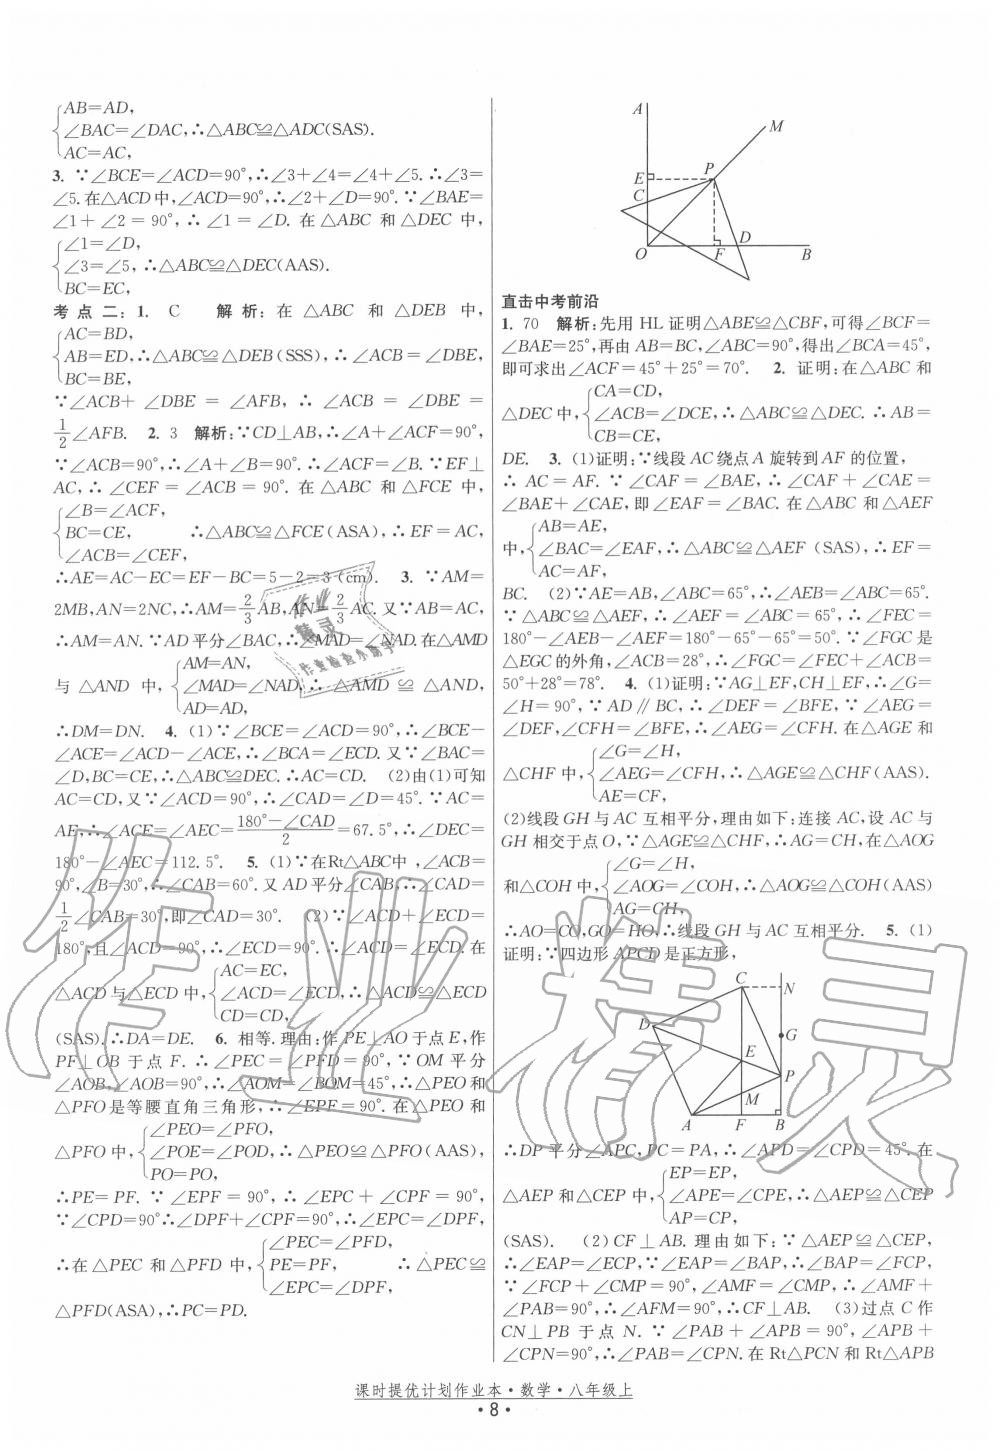 AB=AD,
∠BAC=∠DAC,∴△ABC≌△ADC(SAS).
AC=AC,
3. ∵∠BCE=∠ACD=90°,∴∠3+∠4=∠4+∠5.∴∠3=
∠5.在△ACD中,∠ACD=90°,∴∠2+∠D=90°.∵∠BAE=
∠1+∠2=90°,∴∠1=∠D.在△ABC和△DEC中,
∠1=∠D,
∠3=∠5,∴△ABC≌△DEC(AAS).
BC=EC,
考点二:1. C 解析:在△ABC和△DEB中,
AC=BD,
AB=ED,∴△ABC≌△DEB(SSS),∴∠ACB=∠DBE,
BC=BE,
∵∠ACB+∠DBE=∠AFB,∴∠ACB=∠DBE=
1/2∠AFB. 2. 3 解析:∵CD⊥AB,∴∠A+∠ACF=90°,
∵∠ACB=90°,∴∠A+∠B=90°.∴∠ACF=∠B.∵EF⊥
AC,∴∠CEF=∠ACB=90°.在△ABC和△FCE中,
∠B=∠ACF,
BC=CE, ∴△ABC≌△FCE(ASA),∴EF=AC,
∠ACB=∠CEF,
∴AE=AC-EC=EF-BC=5-2=3(cm). 3. ∵AM=
2MB,AN=2NC,∴AM=2/3AB,AN=2/3AC.又∵AB=AC,
∴AM=AN.∵AD平分∠BAC,∴∠MAD=∠NAD.在△AMD
AM=AN,
与△AND中,∠MAD=∠NAD,∴△AMD≌△AND,
AD=AD,
∴DM=DN. 4. (1)∵∠BCE=∠ACD=90°,∴∠BCE-
∠ACE=∠ACD-∠ACE,∴∠BCA=∠ECD.又∵∠BAC=
∠D,BC=CE,∴△ABC≌DEC.∴AC=CD. (2)由(1)可知
AC=CD,又∵∠ACD=90°,∴∠CAD=∠D=45°.∵AC=
AE,∴∠ACE=∠AEC=180°-∠CAD/2=67.5°,∴∠DEC=
180°-∠AEC=112.5°. 5. (1)∵在Rt△ABC中,∠ACB=
90°,∠B=30°,∴∠CAB=60°.又AD平分∠CAB,∴∠CAD=
1/2∠CAB=30°,即∠CAD=30°. (2)∵∠ACD+∠ECD=
180°,且∠ACD=90°,∴∠ECD=90°.∴∠ACD=∠ECD.在
AC=EC,
△ACD与△ECD中,∠ACD=∠ECD,∴△ACD≌△ECD
CD=CD,
(SAS).∴DA=DE. 6. 相等.理由:作PE⊥AO于点E,作
PF⊥OB于点F.∴∠PEC=∠PFD=90°,∵OM平分
∠AOB,∠AOB=90°,∴∠AOM=∠BOM=45°,∴△PEO和
△PFO是等腰直角三角形,∴∠EPF=90°.在△PEO和
∠PEO=∠PFO,
△PFO中,∠POE=∠POD,∴△PEO≌△PFO(AAS),
PO=PO,
∴PE=PF.∵∠EPF=90°,∴∠EPC+∠CPF=90°,
∵∠CPD=90°∴∠DPF+∠CPF=90°,∴∠EPC=∠DPF,
∠PEC=∠PFD,
∴在△PEC和△PFD中,PE=PF, ∴△PEC≌
∠EPC=∠DPF,
△PFD(ASA),∴PC=PD.
A
M
P
E
C
D
O
F
B
直击中考前沿
1. 70 解析:先用HL证明△ABE≌△CBF,可得∠BCF=
∠BAE=25°,再由AB=BC,∠ABC=90°,得出∠BCA=45°,
即可求出∠ACF=45°+25°=70°. 2. 证明:在△ABC和
CA=CD,
△DEC中,∠ACB=∠DCE,∴△ABC≌△DEC.∴AB=
CB=CE,
DE. 3. (1)证明:∵线段AC绕点A旋转到AF的位置,
∴AC=AF.∵∠CAF=∠BAE,∴∠CAF+∠CAE=
∠BAE+∠CAE,即∠EAF=∠BAC.在△ABC和△AEF
AB=AE,
中,∠BAC=∠EAF,∴△ABC≌△AEF(SAS),∴EF=
AC=AF,
BC. (2)∵AE=AB,∠ABC=65°,∴∠AEB=∠ABC=65°.
∵△ABC≌△AEF,∴∠AEF=∠ABC=65°,∴∠FEC=
180°-∠AEB-∠AEF=180°-65°-65°=50°.∵∠FGC是
△EGC的外角,∠ACB=28°,∴∠FGC=∠FEC+∠ACB=
50°+28°=78°. 4. (1)证明:∵AG⊥EF,CH⊥EF,∴∠G=
∠H=90°,∵AD∥BC,∴∠DEF=∠BFE,∵∠AEG=
∠DEF,∠CFH=∠BFE,∴∠AEG=∠CFH.在△AGE和
∠G=∠H,
△CHF中,∠AEG=∠CFH,∴△AGE≌△CHF(AAS).
AE=CF,
(2)线段GH与AC互相平分,理由如下:连接AC,设AC与
GH相交于点O,∵△AGE≌△CHF,∴AG=CH,在△AOG
∠G=∠H,
和△COH中,∠AOG=∠COH,∴△AOG≌△COH(AAS)
AG=CH,
∴AO=CO,GO=HO,∴线段GH与AC互相平分. 5. (1)
证明:∵四边形APCD是正方形,
C
N
D
G
E
P
M
A
F
B
∴DP平分∠APC,PC=PA,∴∠APD=∠CPD=45°.在
EP=EP,
△AEP和△CEP中,∠APE=∠CPE,∴△AEP≌△CEP
AP=CP,
(SAS). (2)CF⊥AB.理由如下:∵△AEP≌△CEP,
∴∠EAP=∠ECP,∵∠EAP=∠BAP,∴∠BAP=∠FCP,
∵∠FCP+∠CMP=90°,∠AMF=∠CMP,∴∠AMF+
∠PAB=90°,∴∠AFM=90°,∴CF⊥AB. (3)过点C作
CN⊥PB于点N.∵∠PAB+∠APB=90°,∠APB+
∠CPN=90°,∴∠PAB=∠CPN.在Rt△PCN和Rt△APB
课时提优计划作业本·数学·八年级上
·8·
作业精灵
作业
精灵
作业检查小助手